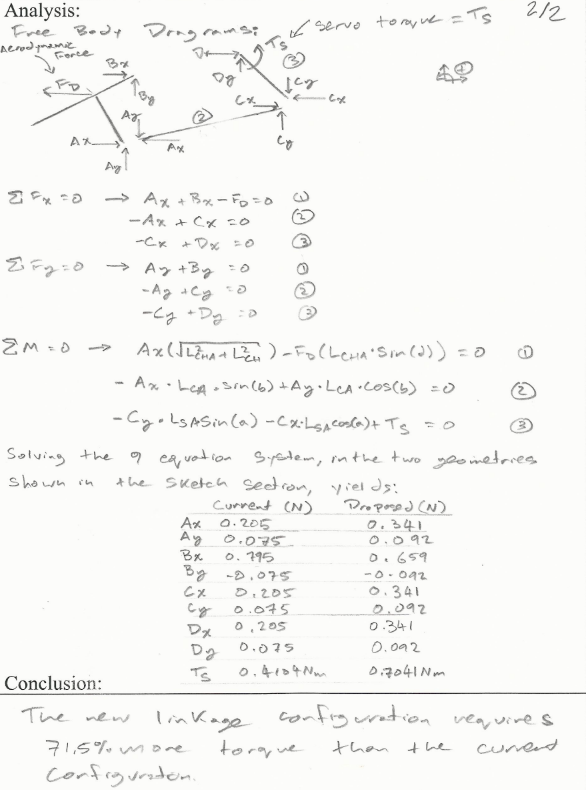 Analysis:
2/2
Free Body Diagrams:
servo torque = Ts
Aerodynamic
Force
FD
Bx
By
Ax
Ay
Ay
Ax
②
Cx
Cy
Dx
Dy
Ts
③
Cy
Cx
ΣFx = 0 → Ax + Bx - FD = 0 ①
-Ax + Cx = 0 ②
-Cx + Dx = 0 ③
ΣFy = 0 → Ay + By = 0 ①
-Ay + Cy = 0 ②
-Cy + Dy = 0 ③
ΣM = 0 → Ax(√L²CHA + L²CH) - FD(LCHA · Sin(d)) = 0 ①
- Ax · LCA · sin(b) + Ay · LCA · cos(b) = 0 ②
- Cy · LSA Sin(a) - Cx · LSA cos(a) + Ts = 0 ③
Solving the 9 equation system, in the two geometries
shown in the sketch section, yields:
Current (N) Proposed (N)
Ax 0.205 0.341
Ay 0.075 0.092
Bx 0.795 0.659
By -0.075 -0.092
Cx 0.205 0.341
Cy 0.075 0.092
Dx 0.205 0.341
Dy 0.075 0.092
Ts 0.4104 Nm 0.7041 Nm
Conclusion:
The new linkage configuration requires
71.5% more torque than the current
configuration.